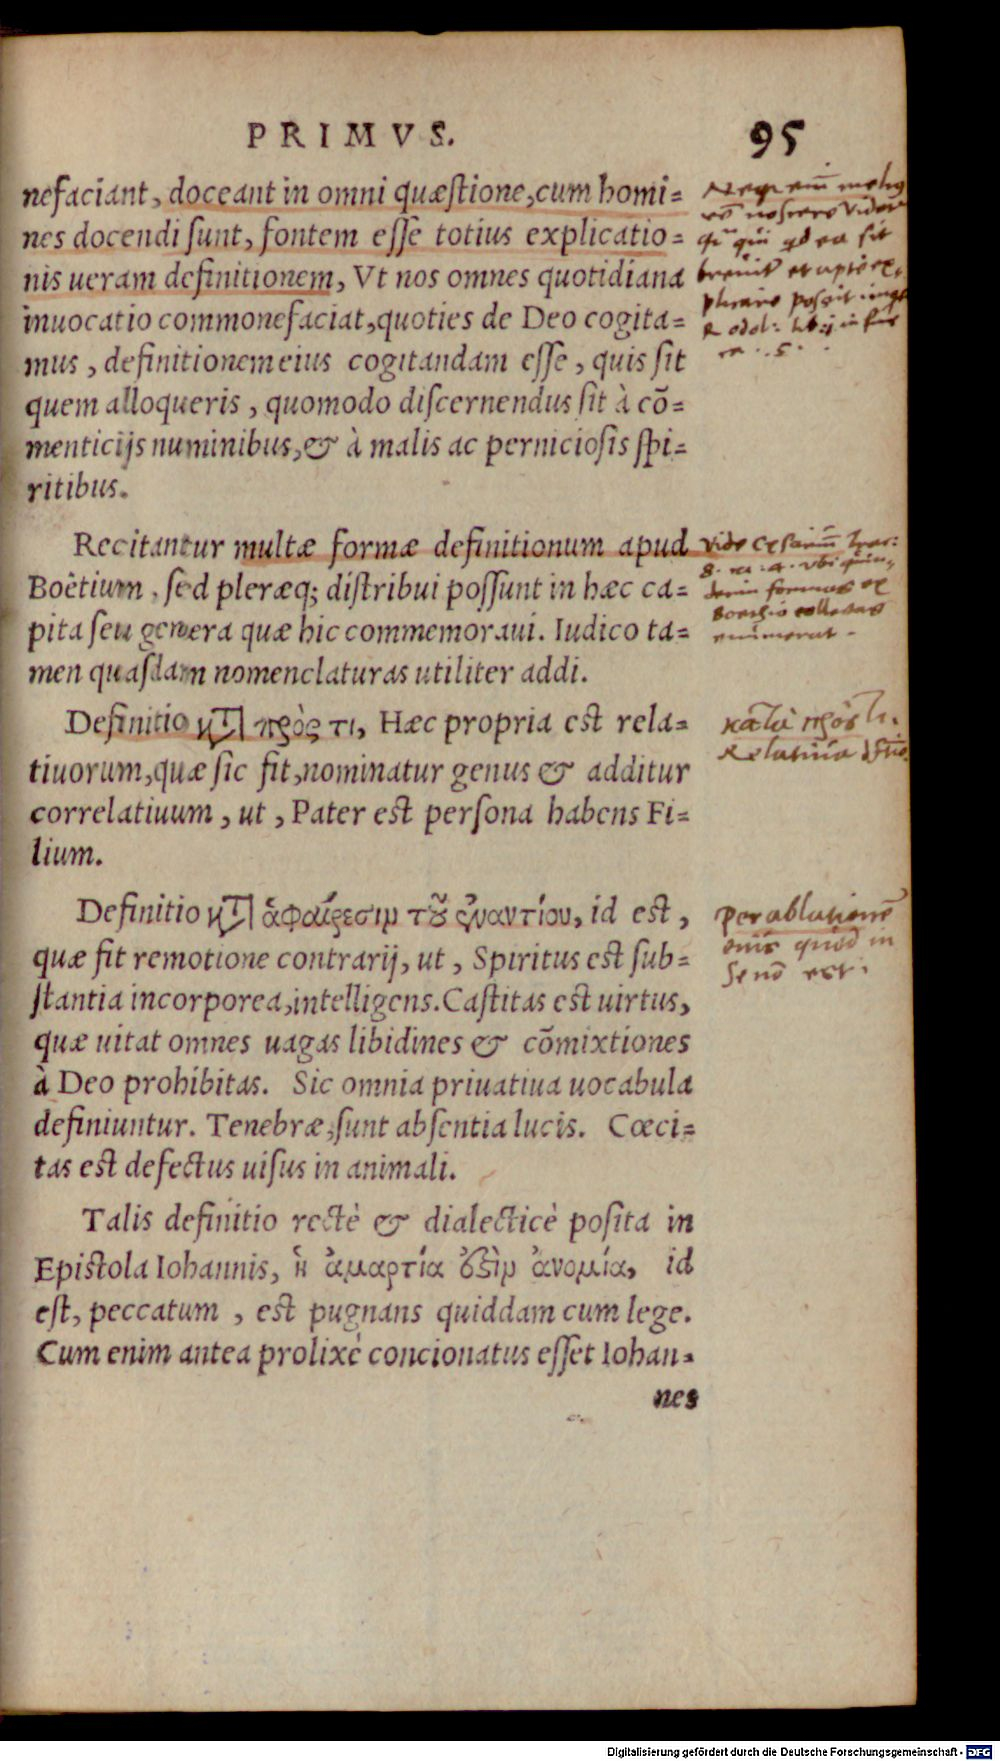 PRIMVS. 95
nefaciant, doceant in omni quæſtione, cum homi=
nes docendi ſunt, fontem eſſe totius explicatio=
nis ueram definitionem, Vt nos omnes quotidiana
inuocatio commonefaciat, quoties de Deo cogita=
mus, definitionem eius cogitandam eſſe, quis ſit
quem alloqueris, quomodo diſcernendus ſit à cõ=
menticijs numinibus, & à malis ac pernicioſis ſpi=
ritibus.
Recitantur multæ formæ definitionum apud
Boêtium, ſed pleræq; diſtribui poſſunt in hæc ca=
pita ſeu genera quæ hic commemoraui. Iudico ta=
men quaſdam nomenclaturas utiliter addi.
Definitio κτ̀ πρὸς τι, Hæc propria est rela=
tiuorum, quæ ſic fit, nominatur genus & additur
correlatiuum, ut, Pater est perſona habens Fi=
lium.
Definitio κτ̀ ἀφαίρεσιμ τοῦ ἐναντίου, id est,
quæ fit remotione contrarij, ut, Spiritus est ſub=
ſtantia incorporea, intelligens. Caſtitas est uirtus,
quæ uitat omnes uagas libidines & cõmixtiones
à Deo prohibitas. Sic omnia priuatiua uocabula
definiuntur. Tenebræ, ſunt abſentia lucis. Cœci=
tas est defectus uiſus in animali.
Talis definitio rectè & dialecticè poſita in
Epistola Iohannis, ἡ ἁμαρτία ὅξὶμ ἀνομία, id
eſt, peccatum, est pugnans quiddam cum lege.
Cum enim antea prolixè concionatus eſſet Iohan=
nes
vide Cæsariũ
8. ca. 4. vbi
formas ex
Boethio collectas
enumerat.
κατὰ πρός τι.
Relatiua
per ablationē
quod in
se nō est.
Digitalisierung gefördert durch die Deutsche Forschungsgemeinschaft - DFG